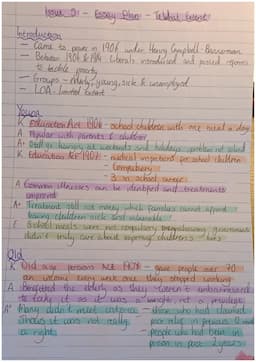 Issue 3 - Essay Plan - To What Extent
Introduction
- Came to power in 1906 under Henry Campbell-Bannerman
- Between 1906 & 1914 Liberals introduced and passed reforms
to tackle poverty
- Groups - elderly, young, sick & unemployed
- LOA - limited extent
Young
K Education Act 1906 - school children with one meal a day
A Popular with parents & children
A+ Still hungry at weekends and holidays, problem not solved
K Education Act 1907 - medical inspections for school children
- Compulsory
- 3 in school career
A Common illnesses can be identified and treatments
A+ Treatment still cost money which families cannot afford
leaving children sick and vulnerable
E School meals were not compulsory government
didn't truly care about improving children's lives
Old
K Old age pensions Act 1908 - gave people over 70
an income every week once they stopped working
A Benefitted the elderly as they weren't embarrassed
to take it as it was a right, not a privilege
A+ Many didn't meet criteria - those who had claimed
Shows it was not really poor relief in previous
a right - people who had been in
prison in past 2 years